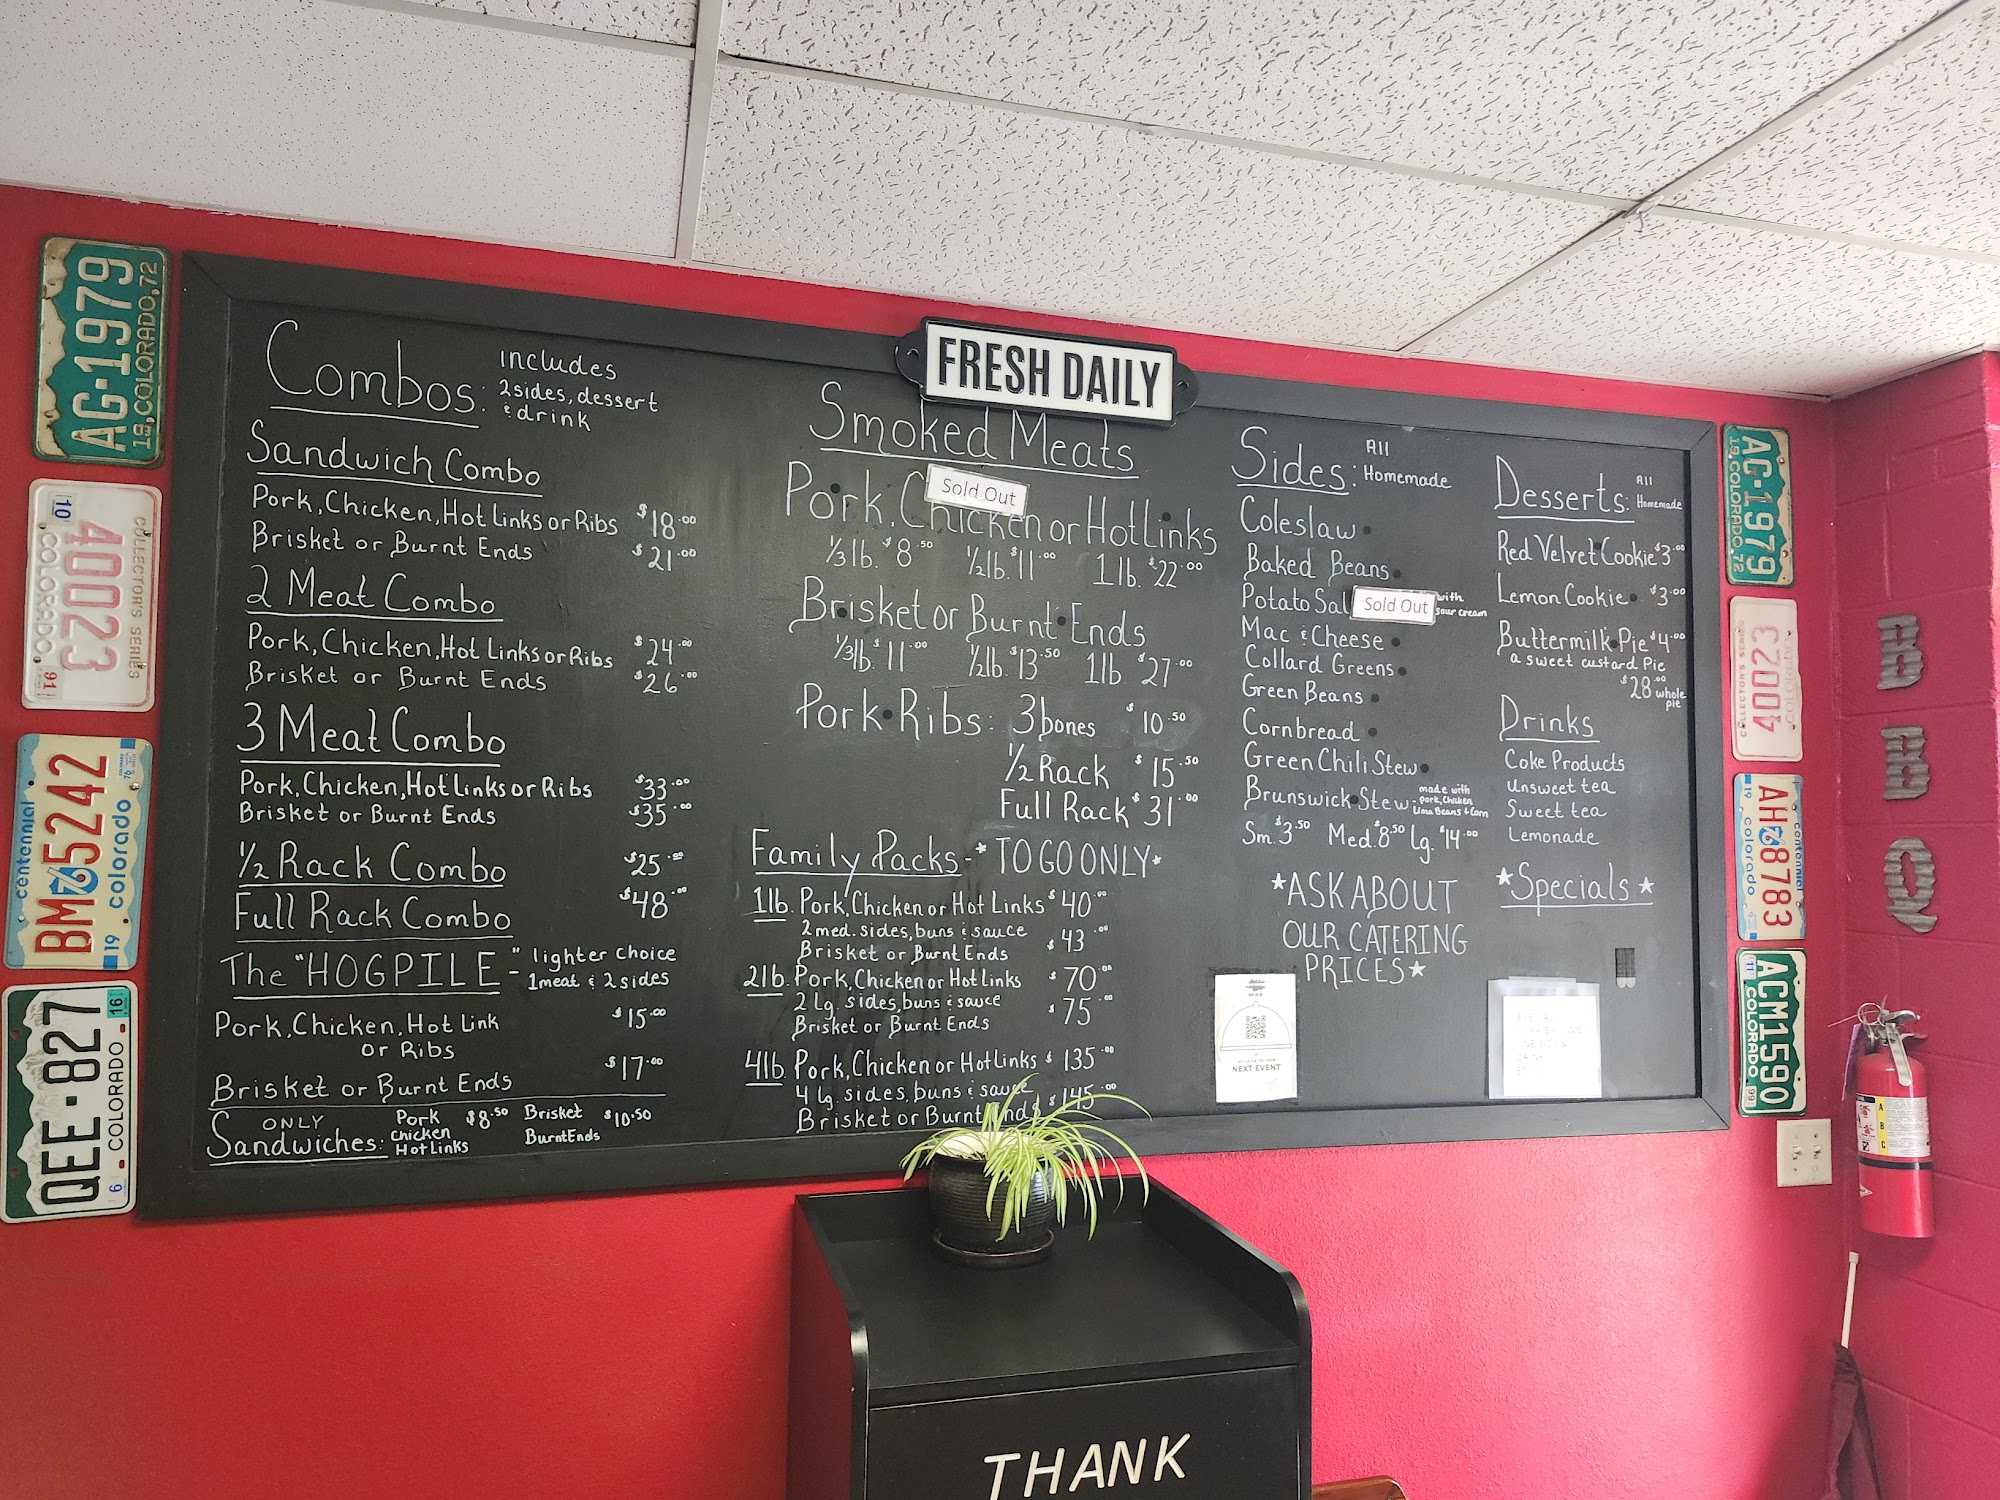 FRESH DAILY
Combos: includes
2 sides, dessert
& drink
Sandwich Combo
Pork, Chicken, Hot Links or Ribs $18.00
Brisket or Burnt Ends $21.00
2 Meat Combo
Pork, Chicken, Hot Links or Ribs $24.00
Brisket or Burnt Ends $26.00
3 Meat Combo
Pork, Chicken, Hot Links or Ribs $33.00
Brisket or Burnt Ends $35.00
1/2 Rack Combo $25.00
Full Rack Combo $48.00
The "HOGPILE" - lighter choice
1 meat & 2 sides
Pork, Chicken, Hot Link $15.00
or Ribs
Brisket or Burnt Ends $17.00
ONLY
Sandwiches: Pork $8.50 Brisket $10.50
Chicken Burnt Ends
Hot Links
Smoked Meats
Sold Out
Pork, Chicken or Hot Links
1/3 lb. $8.50 1/2 lb. $11.00 1 lb. $22.00
Brisket or Burnt Ends
1/3 lb. $11.00 1/2 lb. $13.50 1 lb $27.00
Pork Ribs: 3 bones $10.50
1/2 Rack $15.50
Full Rack $31.00
Family Packs - *TO GO ONLY*
1 lb. Pork, Chicken or Hot Links $40.00
2 med. sides, buns & sauce
Brisket or Burnt Ends $43.00
2 lb. Pork, Chicken or Hot Links $70.00
2 lg. sides, buns & sauce
Brisket or Burnt Ends $75.00
4 lb. Pork, Chicken or Hot Links $135.00
4 lg. sides, buns & sauce
Brisket or Burnt Ends $145.00
Sides: All
Homemade
Coleslaw
Baked Beans
Potato Sal Sold Out with
sour cream
Mac & Cheese
Collard Greens
Green Beans
Cornbread
Green Chili Stew
Brunswick Stew - made with
pork, chicken
Lima Beans + Corn
Sm. $3.50 Med. $8.50 Lg. $14.00
*ASK ABOUT
OUR CATERING
PRICES*
NEXT EVENT
Desserts: All
Homemade
Red Velvet Cookie $3.00
Lemon Cookie $3.00
Buttermilk Pie $4.00
a sweet custard Pie
$28.00 whole
pie
Drinks
Coke Products
Unsweet tea
Sweet tea
Lemonade
*Specials*
AG-1979
19, COLORADO, 72
10
COLLECTOR'S SERIES
40023
COLORADO
91
centennial
BM 76 5242
19 colorado
16
QEE·827
COLORADO
6
AG-1979
19, COLORADO, 72
COLLECTOR'S SERIES
40023
COLORADO
centennial
AH 76 8783
19 colorado
11
ACM1590
COLORADO
99
BBQ
A
B
C
THANK